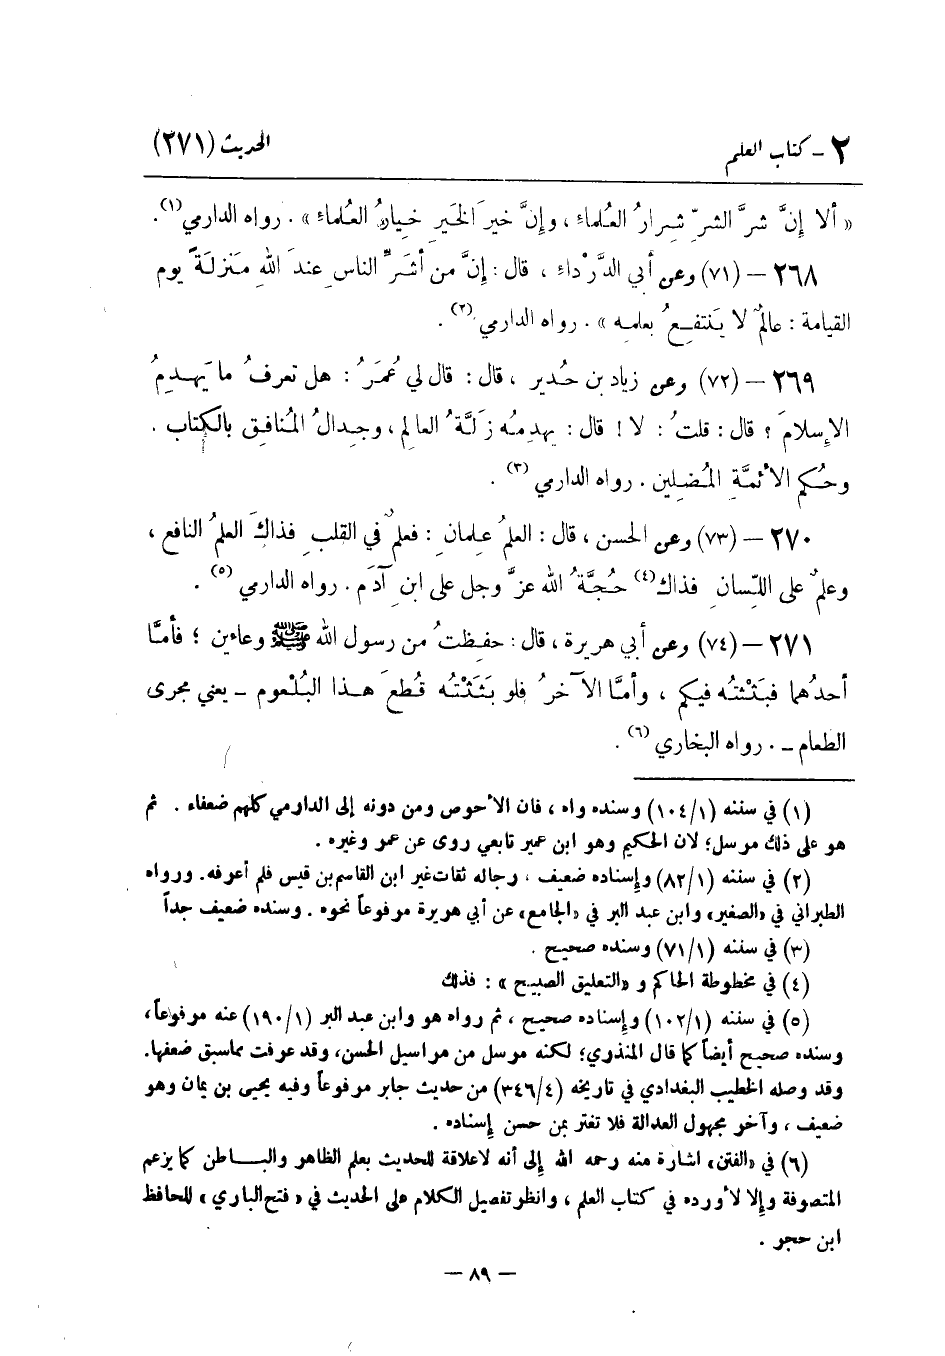 ٢ ـ كتاب العلم الحديث (٢٧١)
« ألا إِنَّ شرَّ الشرِّ شِرارُ العُلماءِ ، وإِنَّ خيرَ الخَيرِ خيارُ العُلماءِ » . رواه الدارمي(١).
٢٦٨ – (٧١) وعن أبي الدَّرْداءِ ، قال : إِنَّ من أشَرِّ الناسِ عندَ اللهِ مَنزلَةً يومَ
القيامة : عالمٌ لا يَنتفِعُ بعلمِه » . رواه الدارمي(٢) .
٢٦٩ – (٧٢) وعن زياد بن حُدير ، قال : قال لي عُمَرُ : هل تعرفُ ما يَهدِمُ
الإِسلامَ ؟ قال : قلتُ : لا ! قال : يهدِمُه زَلَّةُ العالِمِ ، وجِدالُ المُنافِقِ بالكِتابِ .
وحُكم الأئمَّةِ المُضِلين . رواه الدارمي(٣) .
٢٧٠ – (٧٣) وعن الحسن ، قال : العلمُ عِلمانِ : فعلمٌ في القلبِ فذاكَ العلمُ النافع ،
وعلمٌ على اللِّسانِ فذاك(٤) حُجَّةُ الله عزَّ وجل على ابنِ آدَم . رواه الدارمي(٥) .
٢٧١ – (٧٤) وعن أبي هريرة ، قال : حفِظتُ من رسول الله ﷺ وعاءين ؛ فأمَّا
أحدُهما فبَثَثْتُه فيكم ، وأمَّا الآخرُ فلو بَثَثْتُه قُطعَ هذا البُلْعوم – يعني مجرى
الطعام – . رواه البخاري(٦) .
(١) في سننه (١٠٤/١) وسنده واه ، فان الأحوص ومن دونه إلى الدارمي كلهم ضعفاء . ثم
هو على ذلك مرسل؛ لان الحكيم وهو ابن عمير تابعي روى عن عمر وغيره .
(٢) في سننه (٨٢/١) وإسناده ضعيف ، رجاله ثقات غير ابن القاسم بن قيس فلم أعرفه. ورواه
الطبراني في «الصغير» وابن عبد البر في «الجامع» عن أبي هريرة مرفوعاً نحوه . وسنده ضعيف جداً
(٣) في سننه (٧١/١) وسنده صحيح .
(٤) في مخطوطة الحاكم و «التعليق الصبيح » : فذلك
(٥) في سننه (١٠٢/١) وإسناده صحيح ، ثم رواه هو وابن عبد البر (١٩٠/١) عنه مرفوعاً،
وسنده صحيح أيضاً كما قال المنذري؛ لكنه مرسل من مراسيل الحسن، وقد عرفت مماسبق ضعفها.
وقد وصله الخطيب البغدادي في تاريخه (٣٤٦/٤) من حديث جابر مرفوعاً وفيه يحيى بن يمان وهو
ضعيف ، وآخر مجهول العدالة فلا تغتر بمن حسن إسناده .
(٦) في «الفتن» اشارة منه رحمه الله إلى أنه لاعلاقة للحديث بعلم الظاهر والبـاطن كما يزعم
المتصوفة وإلا لأورده في كتاب العلم ، وانظر تفصيل الكلام على الحديث في « فتح الباري » للحافظ
ابن حجر .
— ٨٩ —